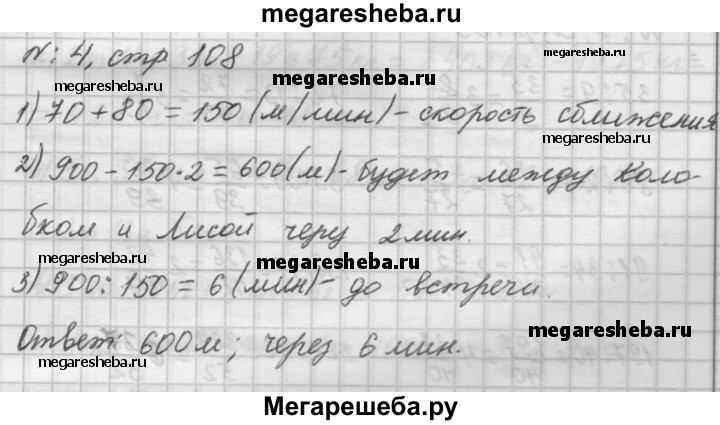 megaresheba.ru
№ 4, стр 108
megaresheba.ru
megaresheba.ru
1) 70 + 80 = 150 (м/мин) - скорость сближения
megaresheba.ru
megaresheba.ru
2) 900 - 150·2 = 600 (м) - будет между Коло-
бком и Лисой через 2 мин.
megaresheba.ru
megaresheba.ru
3) 900 : 150 = 6 (мин) - до встречи.
megaresheba.ru
Ответ: 600 м; через 6 мин.
megaresheba.ru
Мегарешеба.ру